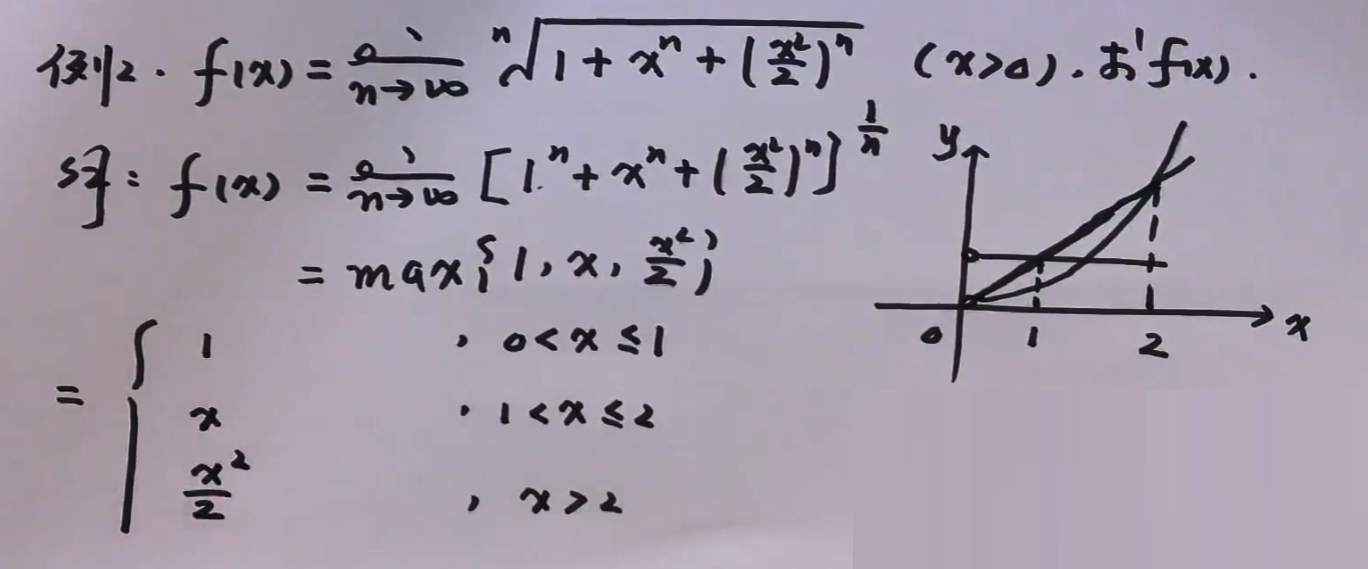 例2. f(x) = lim n→∞ ⁿ√(1 + xⁿ + (x²/2)ⁿ) (x>0). 求 f(x).
解: f(x) = lim n→∞ [1ⁿ + xⁿ + (x²/2)ⁿ]^(1/n)
= max{1, x, x²/2}
= { 1 , 0<x≤1
x , 1<x≤2
x²/2 , x>2
y
0 1 2 x